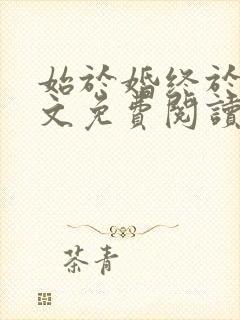 始於婚終於
文免費閱讀
茶青